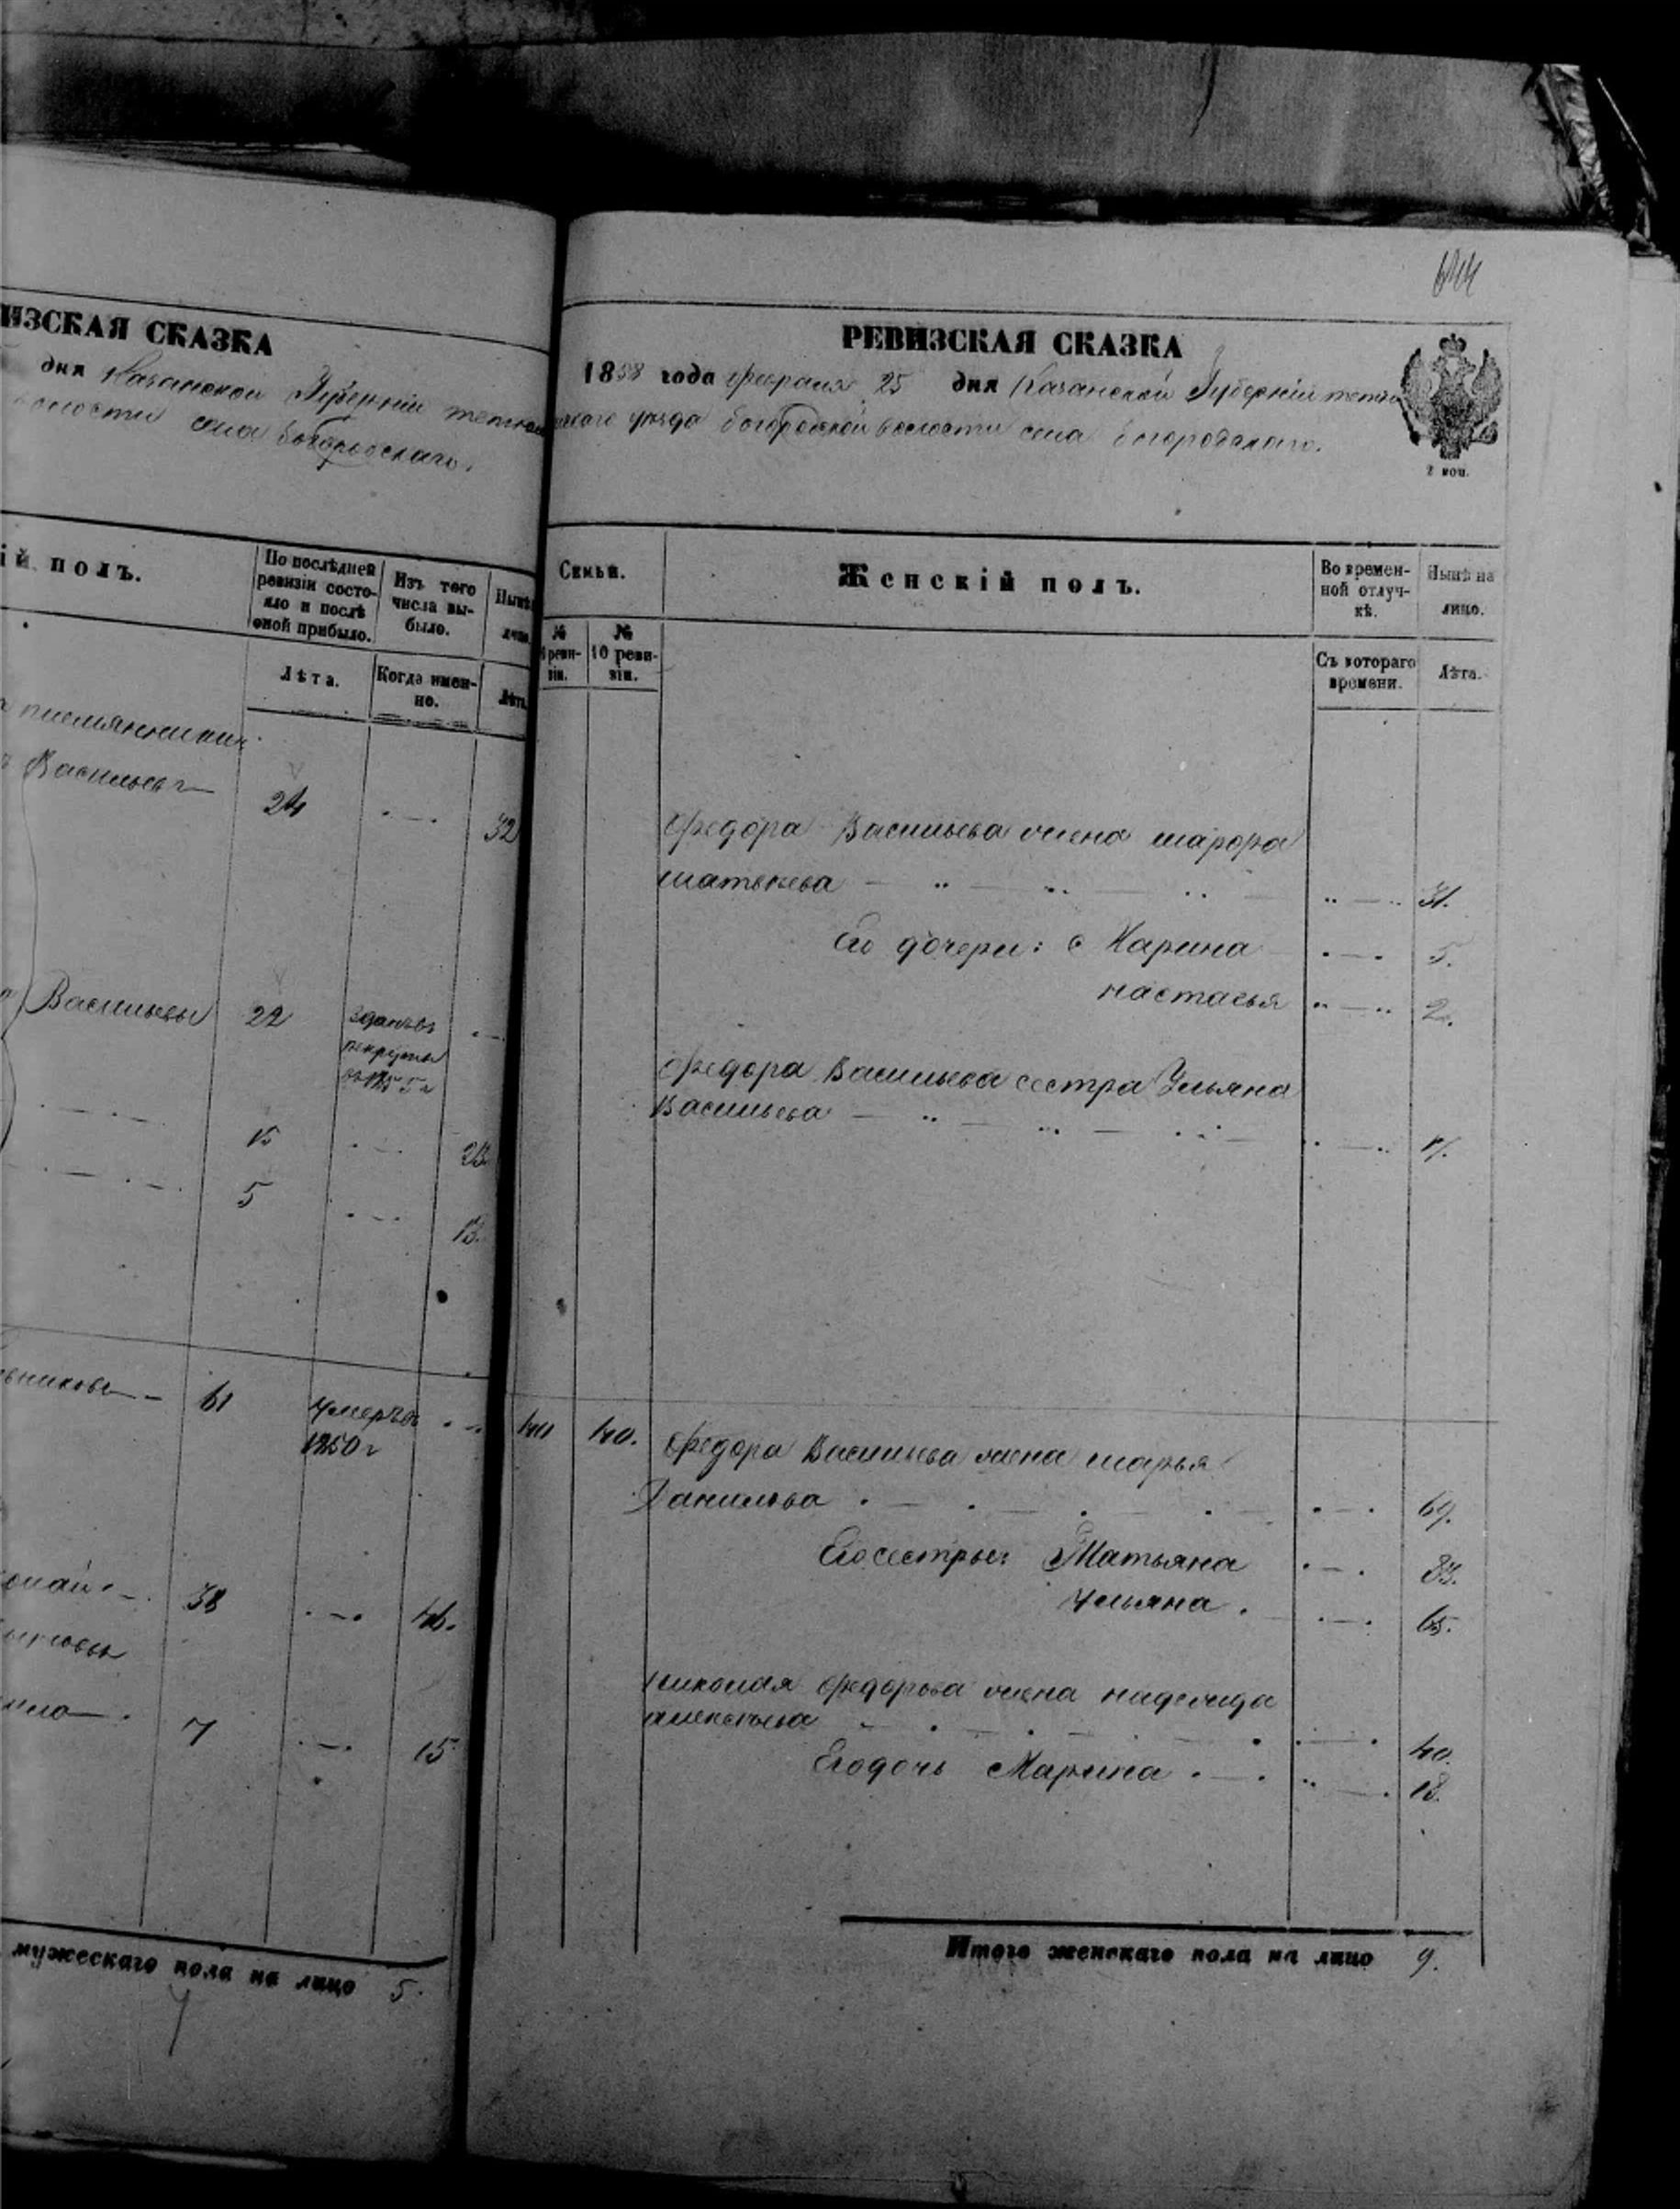 ИЗСКАЯ СКАЗКА
дня Казанской Губернии тетюш
волости села Богородскаго.
ій полъ.
По послѣдней ревизіи состо-
яло и послѣ оной прибыло.
Изъ того числа вы-
было.
Нынѣ
Лѣта.
Когда имен-
но.
Лѣта
племянники
Васильевъ 24 32
Васильевы 22 зданъ въ
рекруты
въ 1855 г
15 23
5 13.
61 умеръ въ
1850 г
38 46.
7 15.
мужескаго пола на лицо 5.
7
644
РЕВИЗСКАЯ СКАЗКА
1858 года февраля 25 дня Казанской Губерніи тетю
шскаго уѣзда Богородской волости села Богородскаго.
2 коп.
Семьи.
Женскій полъ.
Во времен-
ной отлуч-
кѣ.
Ныпѣ на
лицо.
№
ревизіи.
№
10 реви-
зіи.
Съ котораго
времени.
Лѣта.
Федора Васильева жена
матвеева 31.
Его дочери: Марина 5.
настасья 2.
Федора Васильева сестра Ульяна
Васильева
40 40. Федора Васильева жена марья
Данилова 69.
Его сестры: Татьяна
Ульяна 65.
николая Федорова жена надежда
алексѣева 40.
Его дочь Марина 18.
Итого женскаго пола на лицо 9.